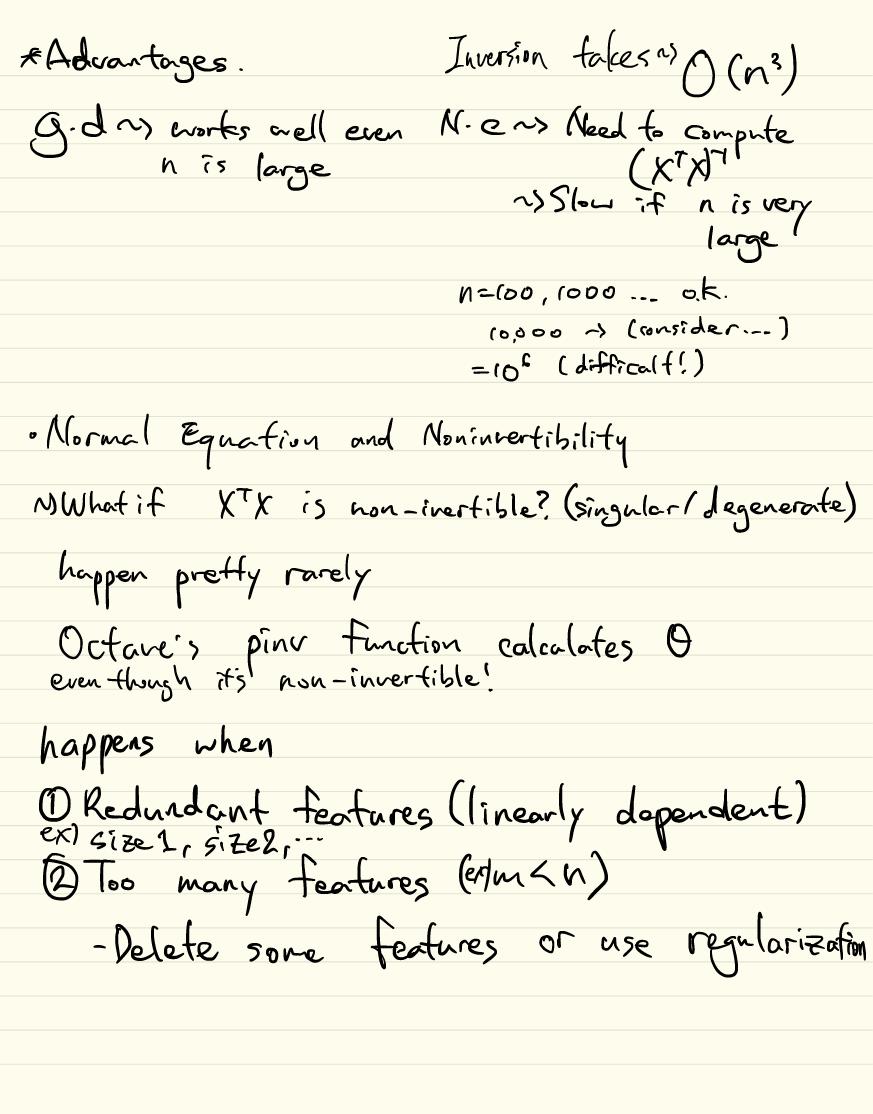 *Advantages.
Inversion takes ~> O(n³)
g.d ~> works well even
n is large
N.e ~> Need to compute
(XᵀX)⁻¹
~> Slow if n is very
large
n=100, 1000 ... o.k.
10,000 → (consider...)
=10⁶ (difficalt!)
• Normal Equation and Noninvertibility
~> What if XᵀX is non-invertible? (singular/degenerate)
happen pretty rarely
Octave's pinv function calcalates θ
even though it's non-invertible!
happens when
① Redundant features (linearly dependent)
ex) size1, size2, ...
② Too many features (ex) m < n)
- Delete some features or use regularization